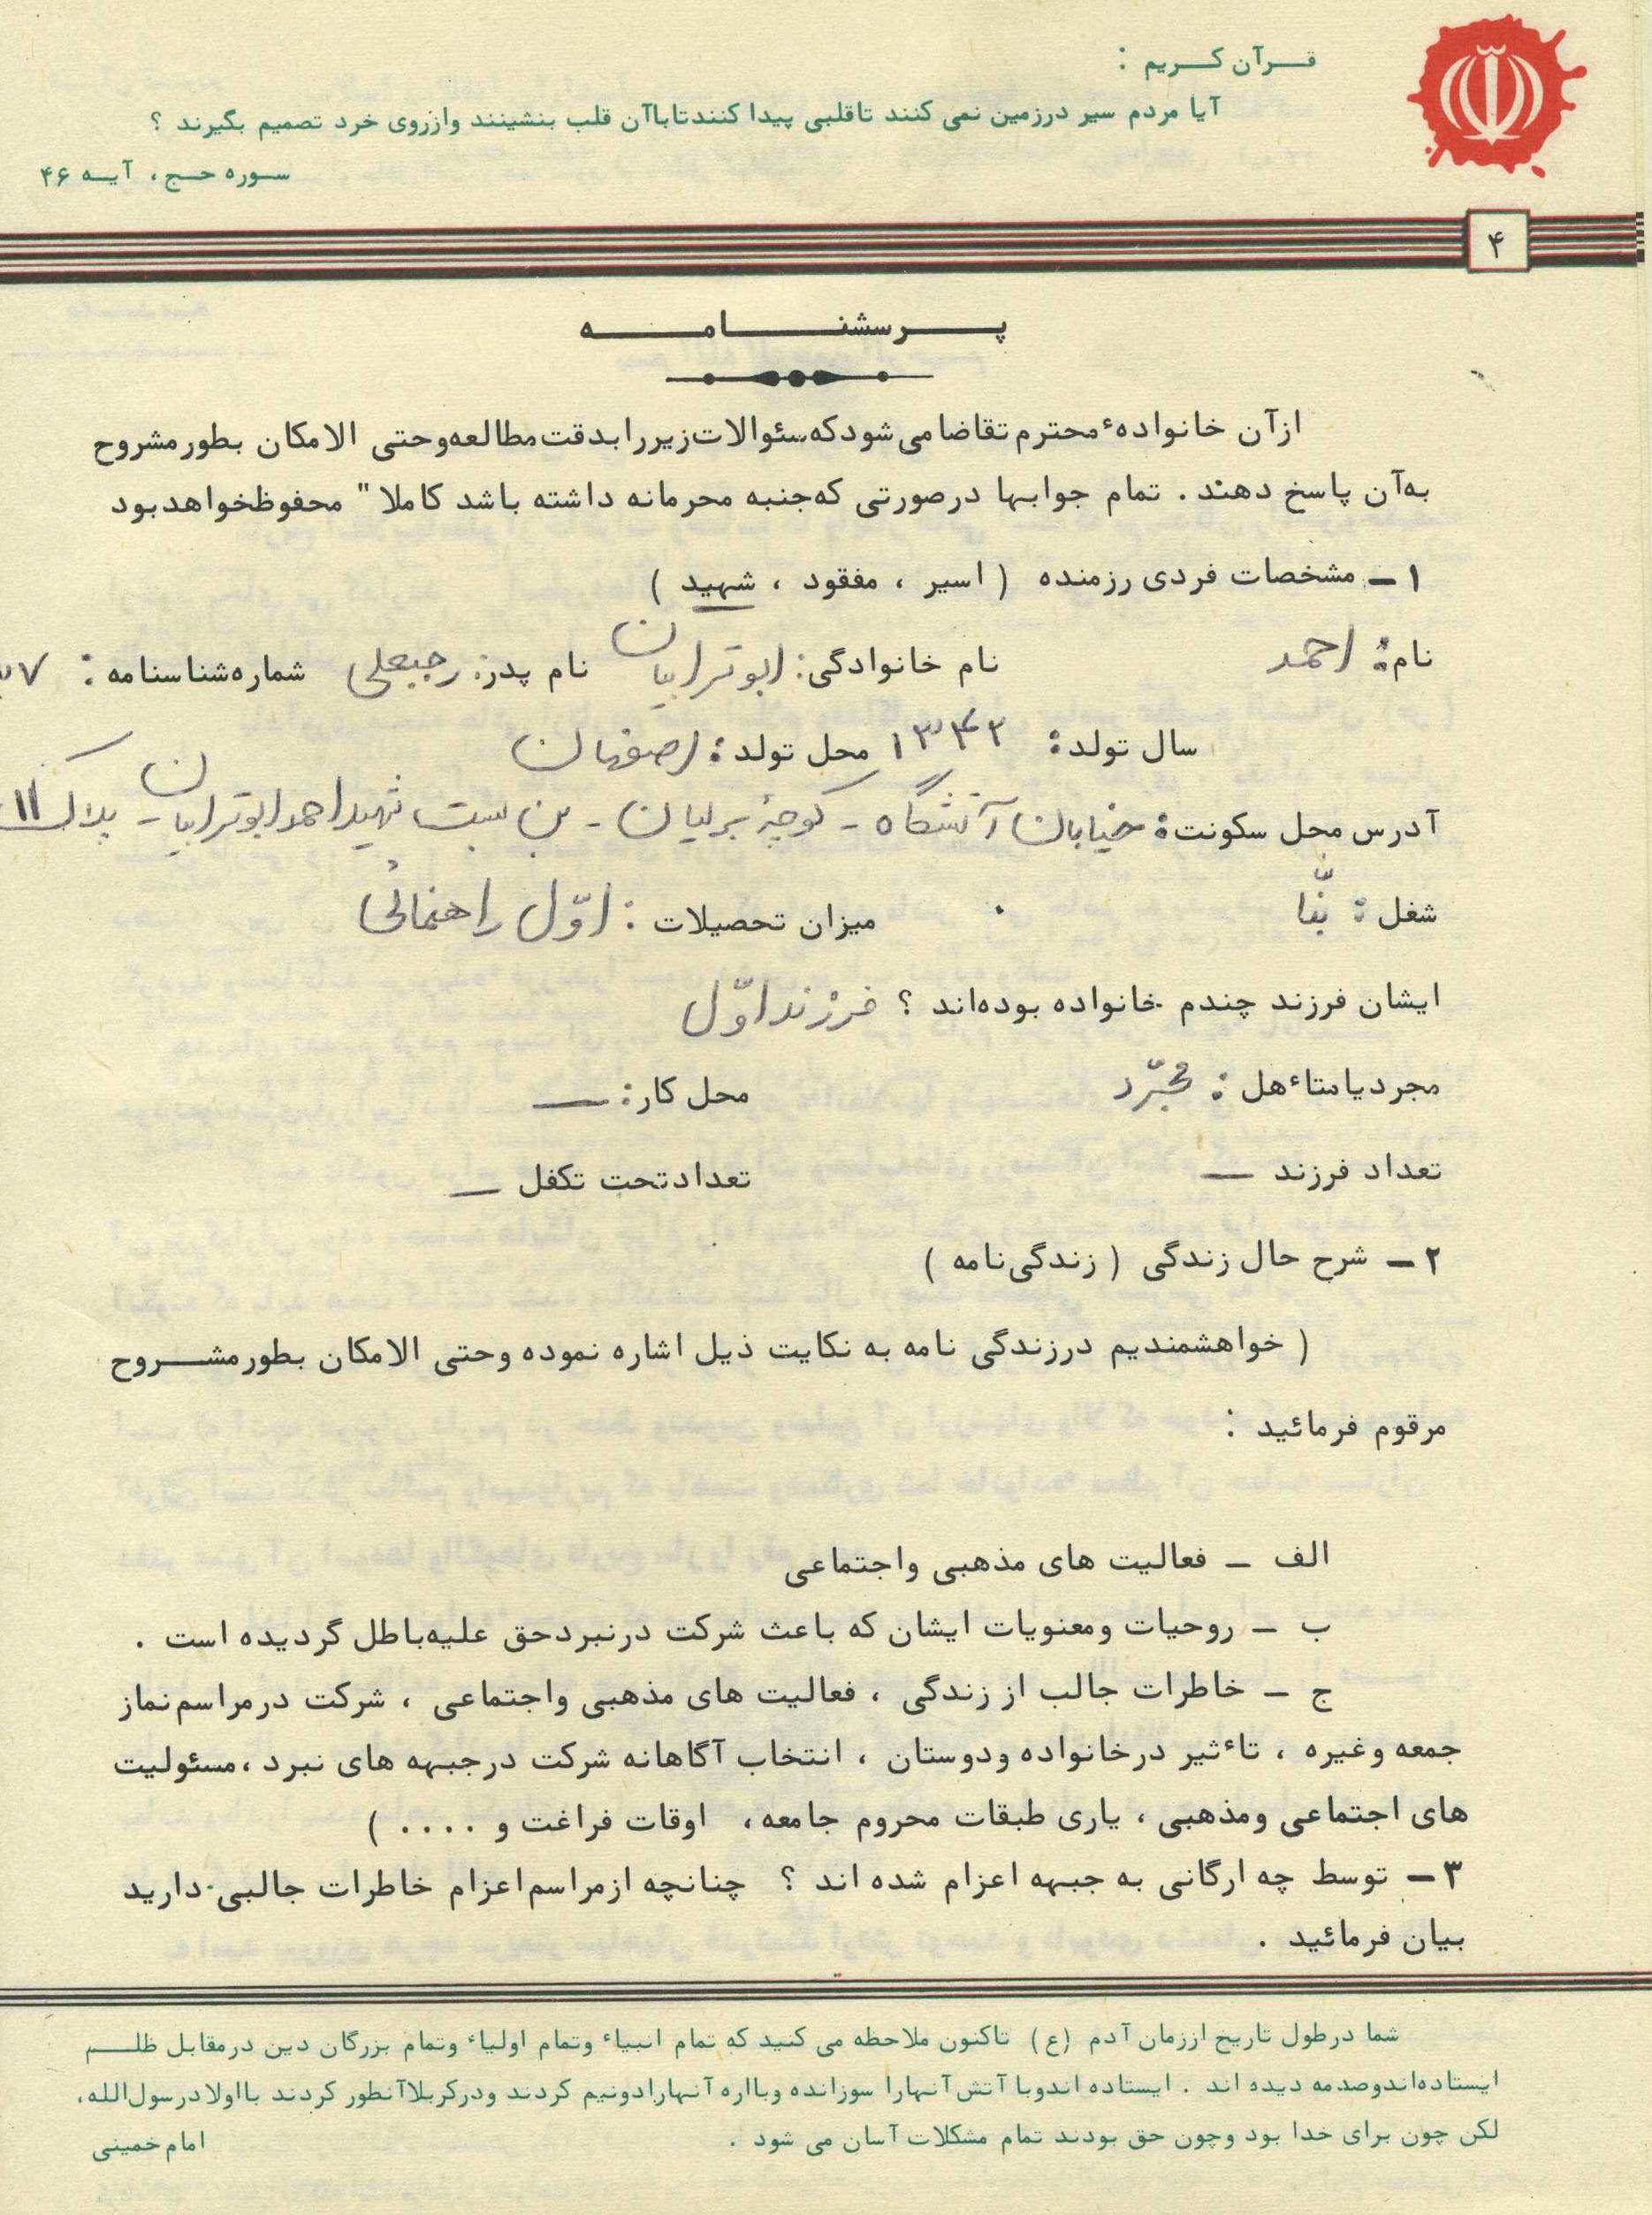 قرآن کریم :
آیا مردم سیر درزمین نمی کنند تاقلبی پیدا کنندتاباآن قلب بنشینند وازروی خرد تصمیم بگیرند ؟
سوره حج ، آیه ۴۶
۴
پرسشنامه
ازآن خانوادهٔ محترم تقاضا می شودکه سئوالات زیررا بدقت مطالعه وحتی الامکان بطور مشروح
به آن پاسخ دهند . تمام جوابها درصورتی که جنبه محرمانه داشته باشد کاملا" محفوظ خواهد بود
۱ – مشخصات فردی رزمنده ( اسیر ، مفقود ، شهید )
نام : احمد نام خانوادگی : ابوترابیان نام پدر : رجبعلی شماره شناسنامه :
سال تولد : ۱۳۴۲ محل تولد : اصفهان
آدرس محل سکونت : خیابان آتشگاه - کوچهٔ برلیان - بن بست شهید احمد ابوترابیان - پلاک ۱۱
شغل : بنّا میزان تحصیلات : اوّل راهنمائی
ایشان فرزند چندم خانواده بوده‌اند ؟ فرزند اوّل
مجرد یا متاٴهل : مجرّد محل کار : —
تعداد فرزند — تعداد تحت تکفل —
۲ – شرح حال زندگی ( زندگی‌نامه )
( خواهشمندیم درزندگی نامه به نکایت ذیل اشاره نموده وحتی الامکان بطور مشروح
مرقوم فرمائید :
الف – فعالیت های مذهبی واجتماعی
ب – روحیات ومعنویات ایشان که باعث شرکت درنبرد حق علیه باطل گردیده است .
ج – خاطرات جالب از زندگی ، فعالیت های مذهبی واجتماعی ، شرکت درمراسم نماز
جمعه وغیره ، تاٴثیر درخانواده ودوستان ، انتخاب آگاهانه شرکت درجبهه های نبرد ، مسئولیت
های اجتماعی ومذهبی ، یاری طبقات محروم جامعه ، اوقات فراغت و .... )
۳ – توسط چه ارگانی به جبهه اعزام شده اند ؟ چنانچه ازمراسم اعزام خاطرات جالبی دارید
بیان فرمائید .
شما درطول تاریخ اززمان آدم (ع) تاکنون ملاحظه می کنید که تمام انبیاء وتمام اولیاء وتمام بزرگان دین درمقابل ظلم
ایستاده‌اندوصدمه دیده اند . ایستاده اندوبا آتش آنهارا سوزانده وبااره آنهارادونیم کردند ودرکربلاآنطور کردند بااولادرسول‌الله،
لکن چون برای خدا بود وچون حق بودند تمام مشکلات آسان می شود . امام خمینی